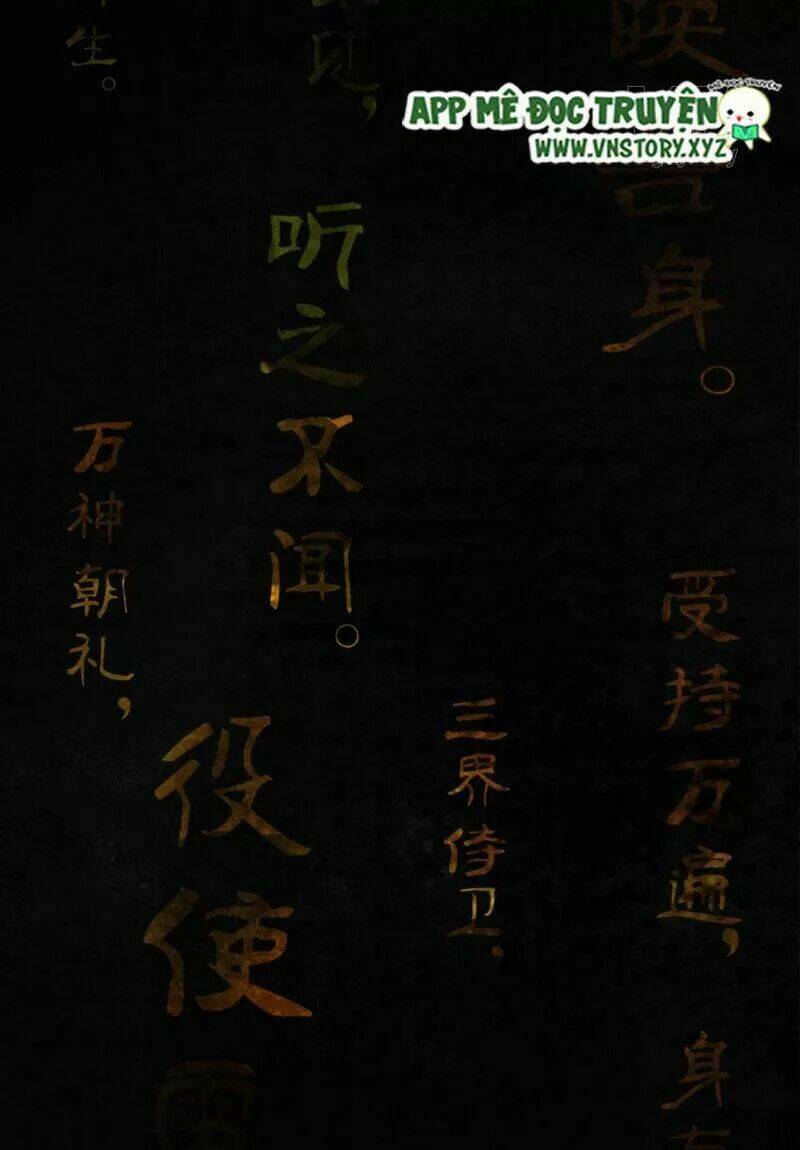 APP MÊ ĐỌC TRUYỆN
WWW.VNSTORY.XYZ
身。
受持万遍，
身
三界侍卫，
见，
听之不闻。
役使
生。
万神朝礼，